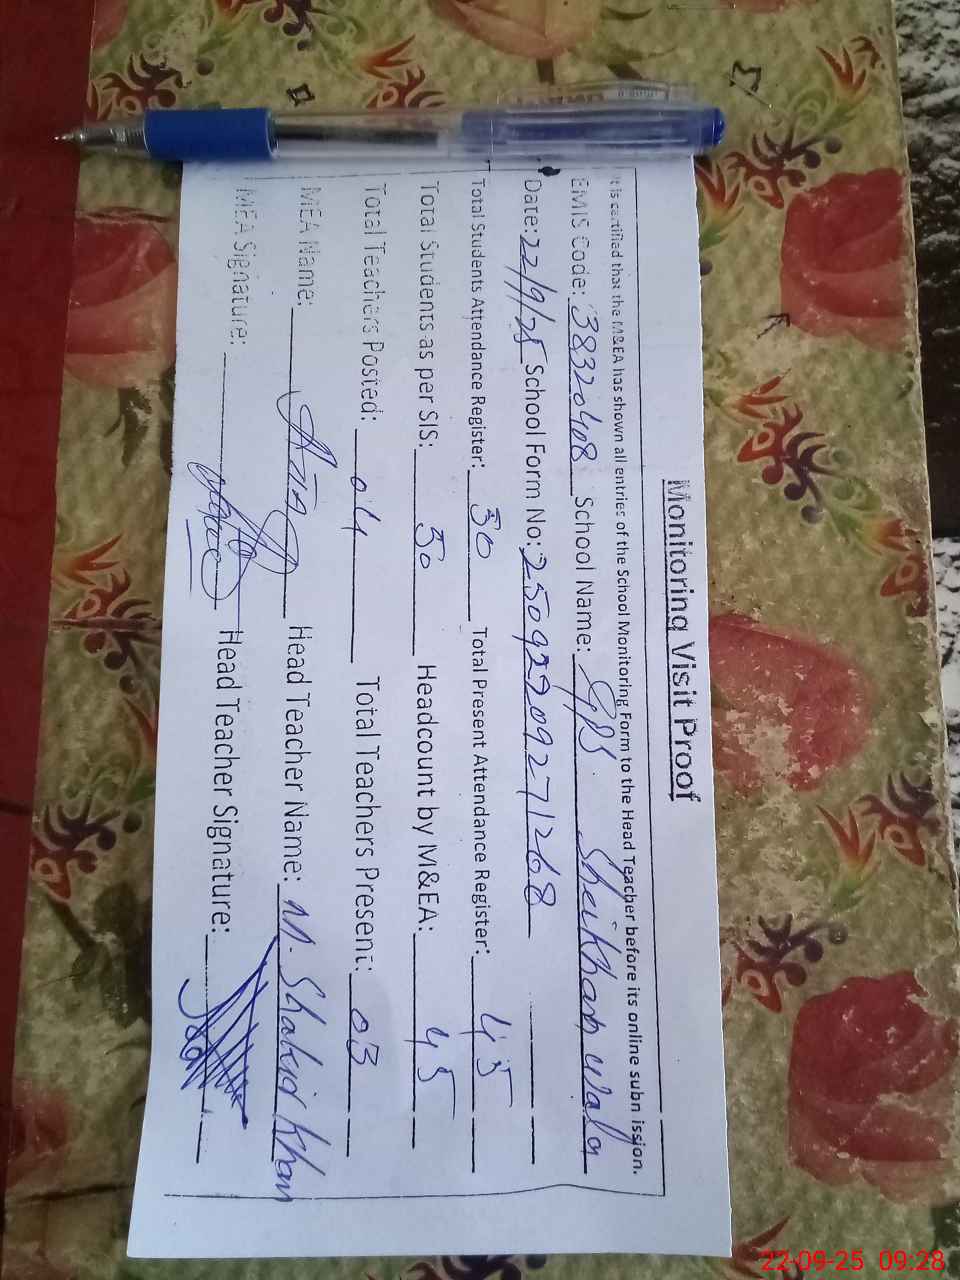 Monitoring Visit Proof
It is certified that the M&EA has shown all entries of the School Monitoring Form to the Head Teacher before its online subn ission.
EMIS Code: 38320408 School Name: GPS Sheikhan wala
Date: 22/9/25 School Form No: 25092209271268
Total Students Attendance Register: 50 Total Present Attendance Register: 45
Total Students as per SIS: 50 Headcount by M&EA: 45
Total Teachers Posted: 04 Total Teachers Present: 03
MEA Name: Head Teacher Name: M. Shakir Khan
MEA Signature: Head Teacher Signature:
22-09-25 09:28